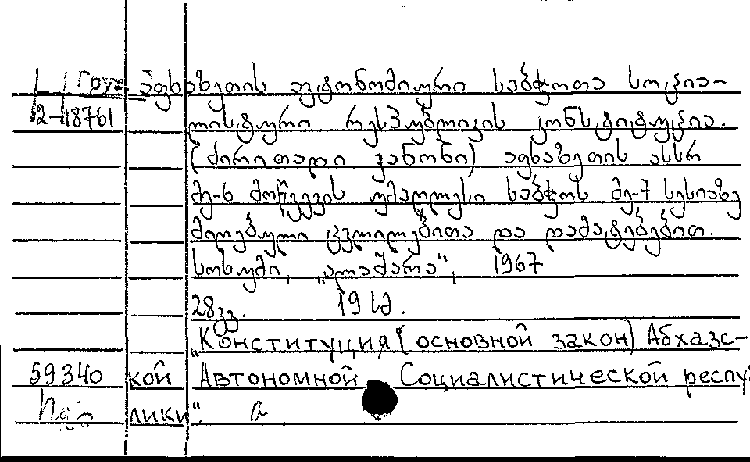 Груз აფხაზეთის ავტონომიური საბჭოთა სოცია-
2-18761 ლისტური რესპუბლიკის კონსტიტუცია.
(ძირითადი კანონი) აფხაზეთის ასსრ
მე-6 მოწვევის უმაღლესი საბჭოს მე-7 სესიაზე
მიღებული ცვლილებითა და დამატებებით.
სოხუმი, „ალაშარა“, 1967
28გვ. 19 სმ.
„Конституция (основной закон) Абхазс-
59340 кой Автономной Социалистической респу
лики“. а